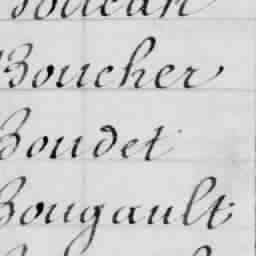 Boucher
Boudet
Bougault